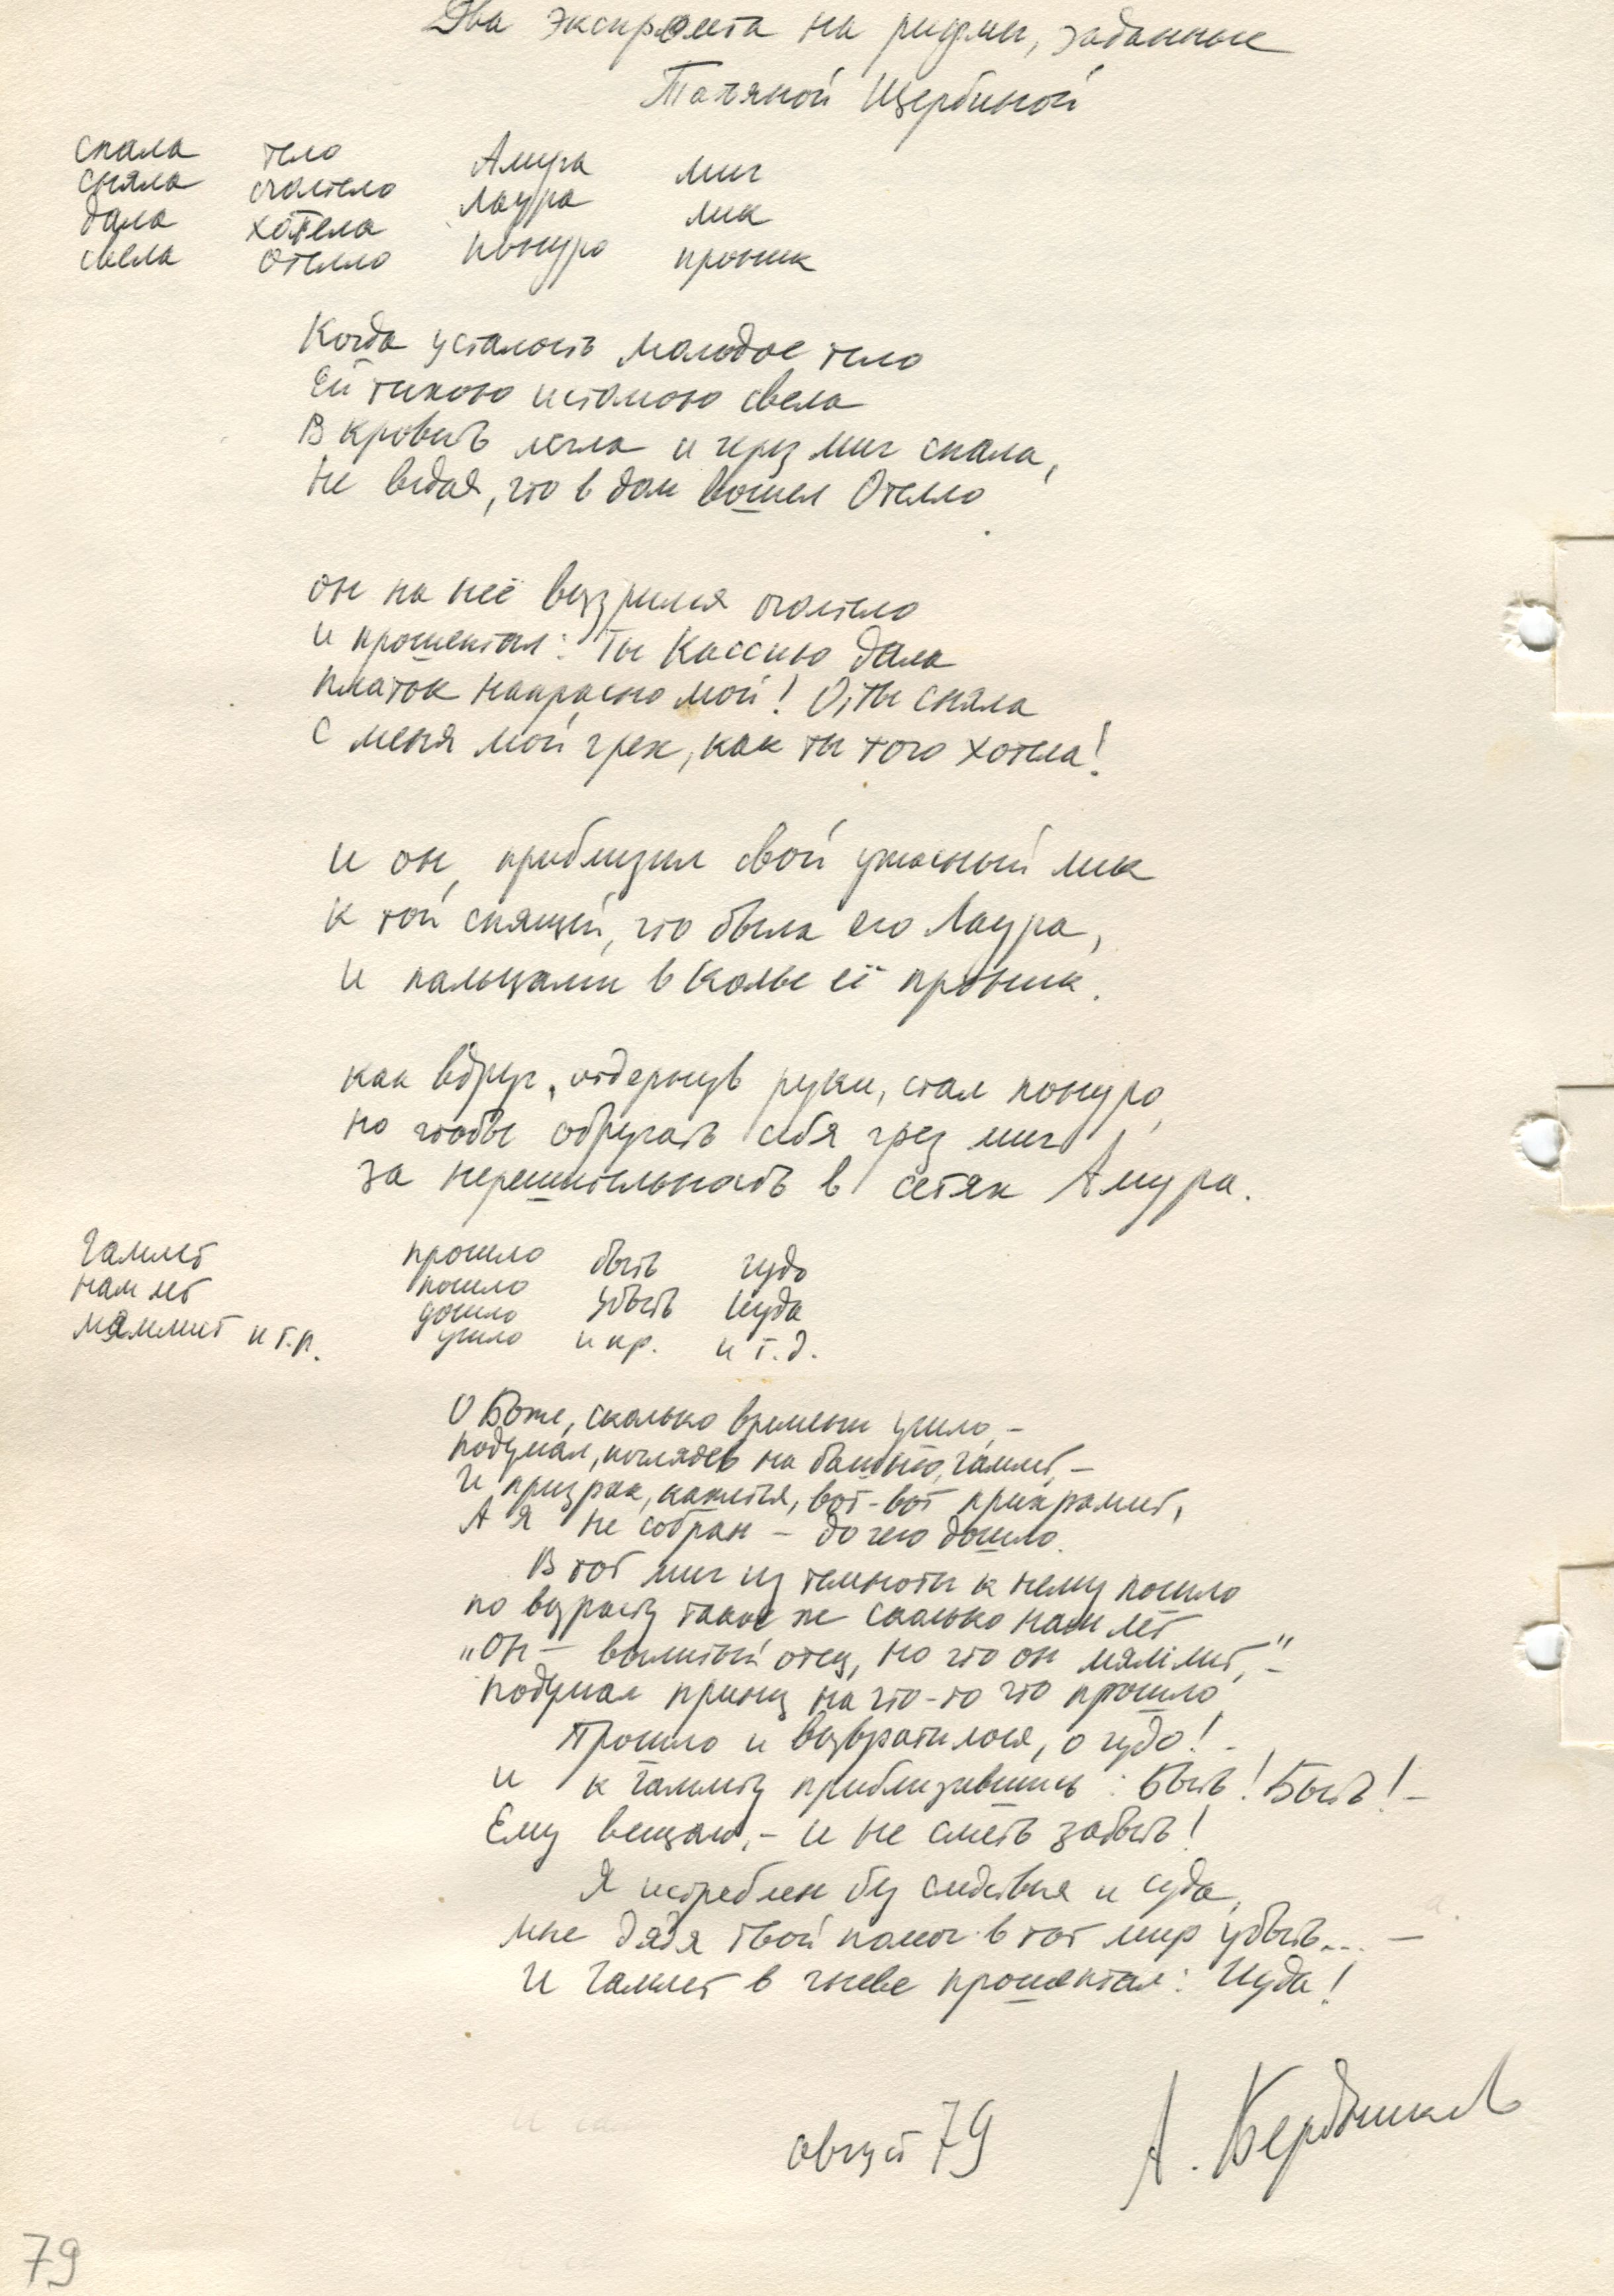 Два экспромта на рифмы, заданные
Татьяной Щербиной
спала тело Амура миг
сняла оголтело Лаура лик
дала хотела понуро проник
свела Отелло
Когда усталость молодое тело
Ей тихою истомою свела
В кровать легла и через миг спала,
Не ведая, что в дом вошел Отелло
он на неё воззрился оголтело
и прошептал: Ты Кассио дала
платок напрасно мой! О, ты сняла
с меня мой грех, как ты того хотела!
И он, приблизил свой ужасный лик
к той спящей, что была его Лаура,
и пальцами в колье её проник.
как вдруг, отдернув руки, стал понуро,
но чтобы обругать себя чрез миг
за нерешительность в сетях Амура.
Гамлет прошло быть чудо
нам лет пошло убыть Иуда
мямлит и т.п. дошло и пр. и т.д.
ушло
О Боже, сколько времени ушло, –
подумал, поглядев на башню, Гамлет, –
И призрак, кажется, вот-вот прихрамит,
А я не собран – до чего дошло.
В тот миг из темноты к нему пошло
по возрасту такое же сколько нам лет
„Он – вылитый отец, но что он мямлит," –
подумал принц на что-то что прошло
Прошло и возвратилося, о чудо! –
и к Гамлету приблизившись: Быть! Быть! –
Ему вещало, – и не сметь забыть!
Я истреблен без следствия и суда,
мне дядя твой помог в тот мир убыть... –
И Гамлет в гневе прошептал: Иуда!
август 79 А. Бердников
79